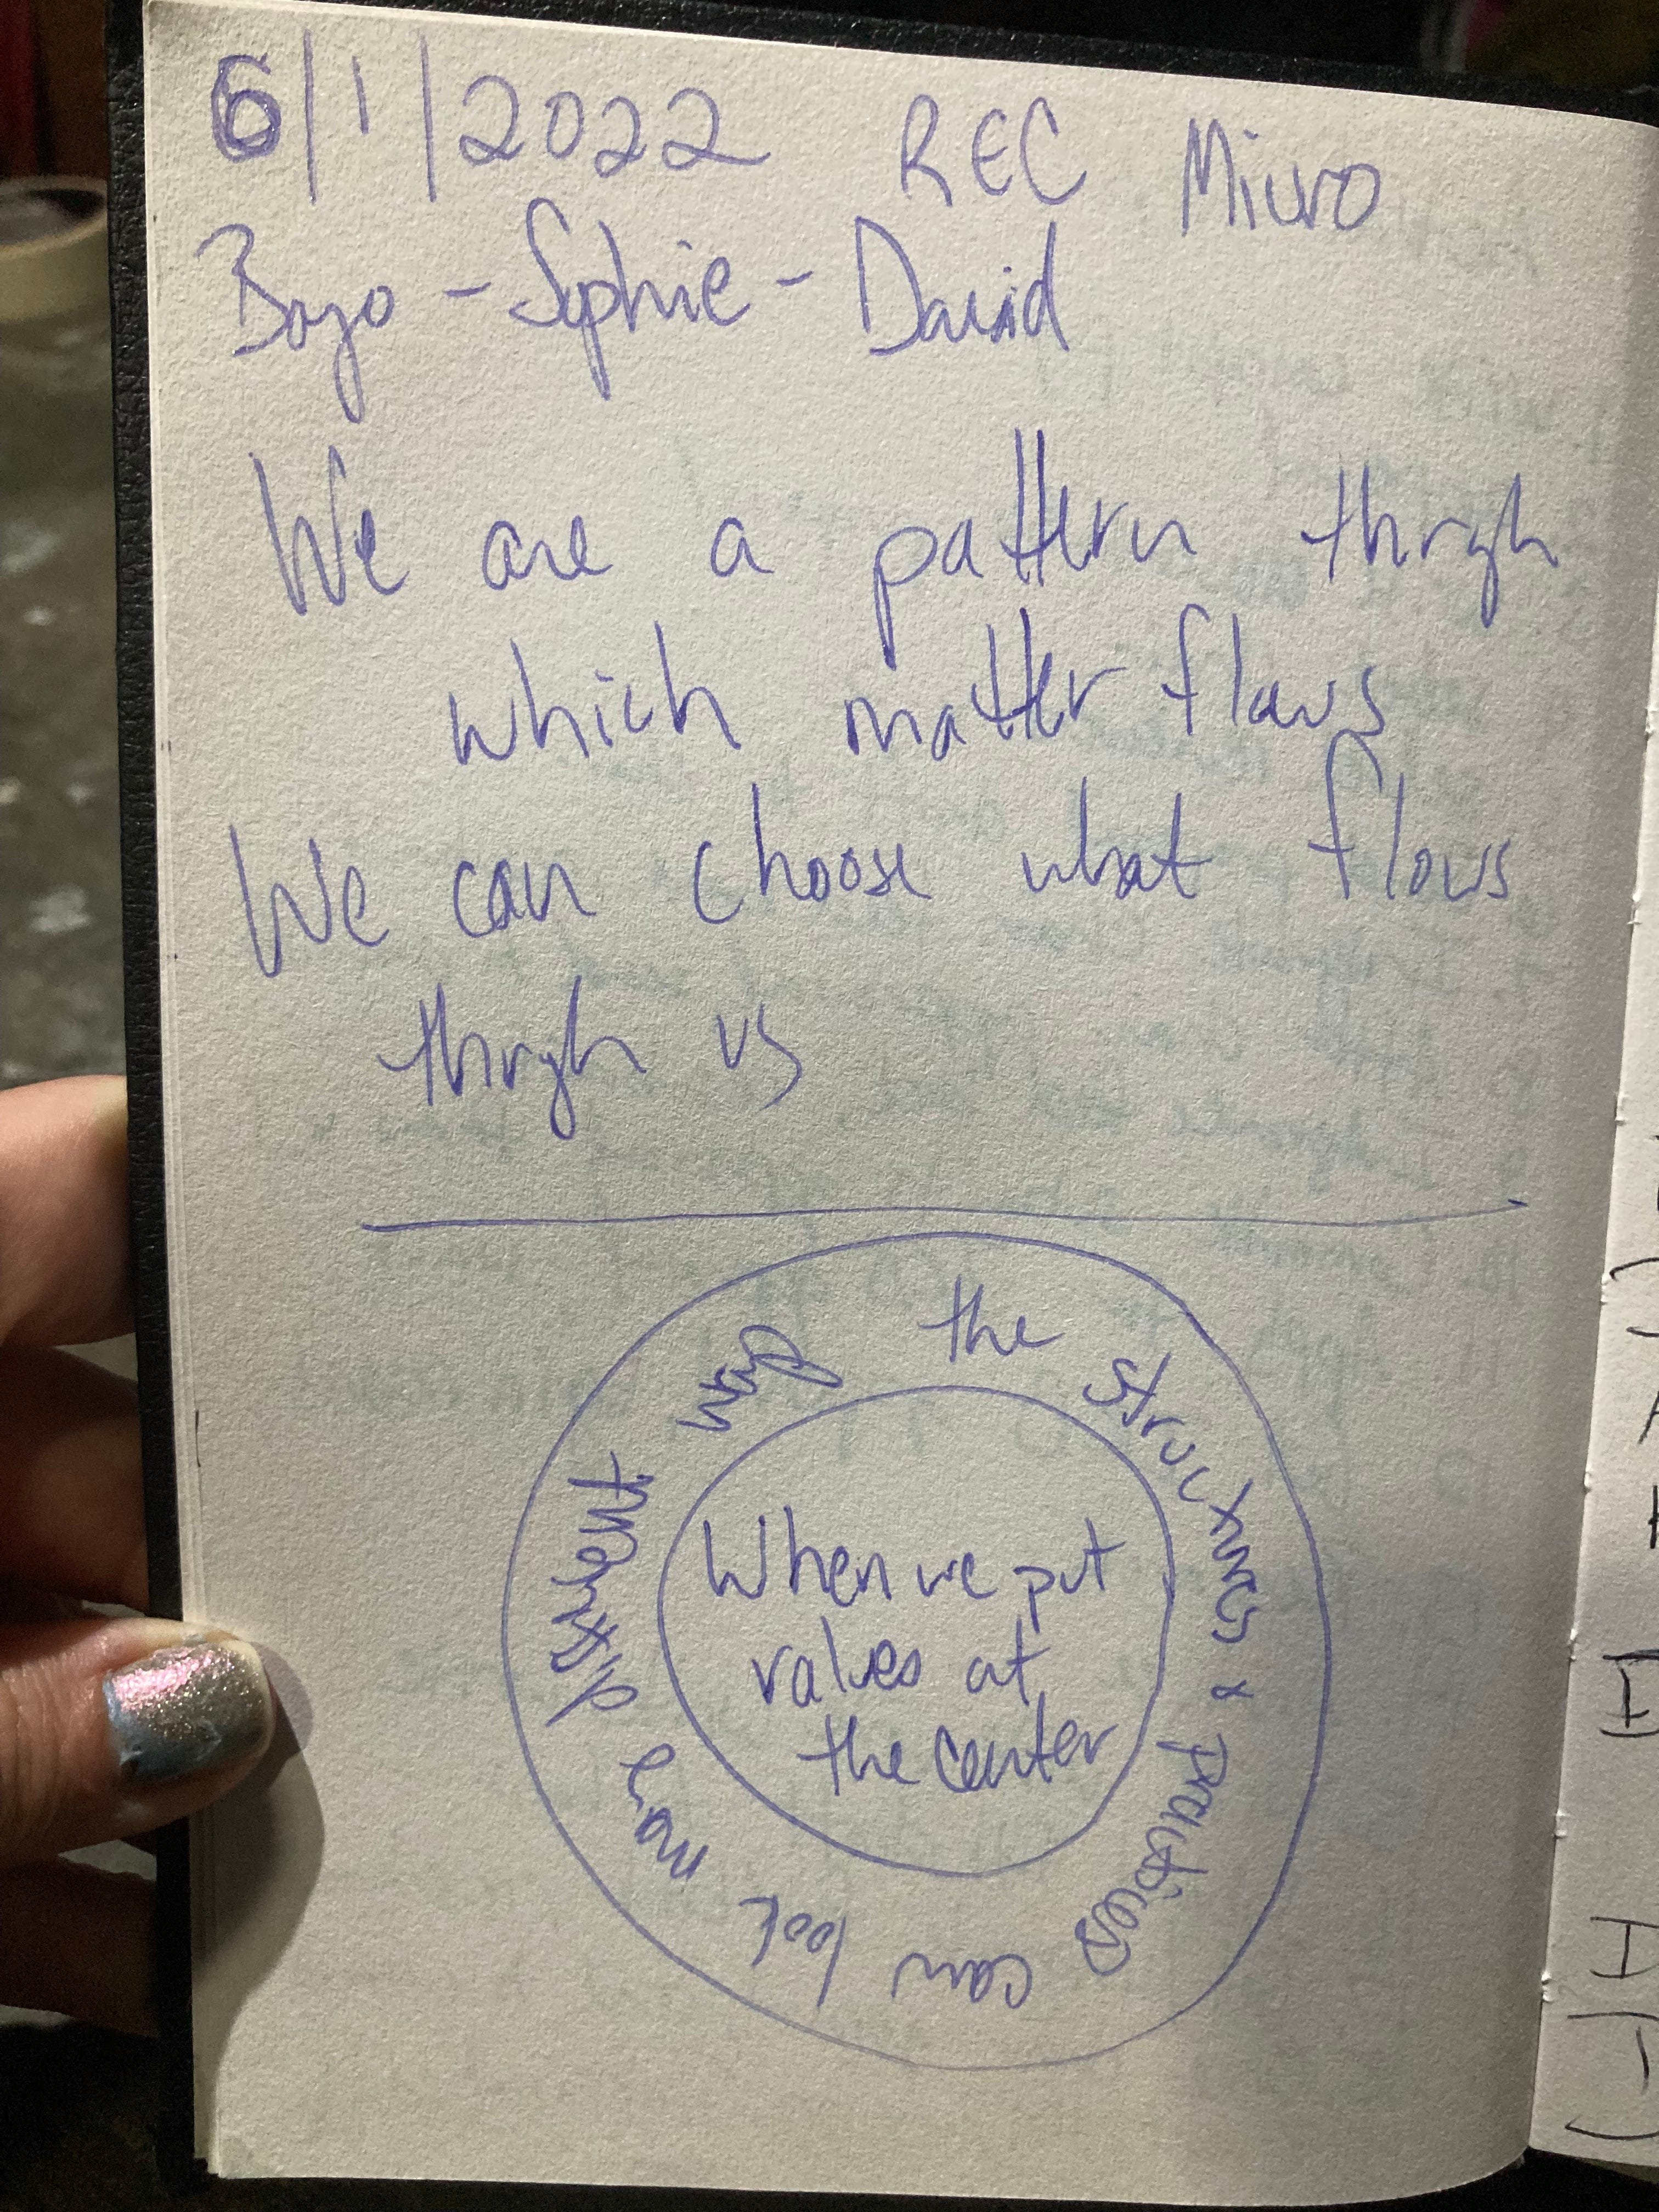 6/1/2022 REC Micro
Bayo - Sophie - David
We are a pattern thrgh
which matter flows
We can choose what flows
thrgh us
When we put
values at
the center
the structures & practices can look more different